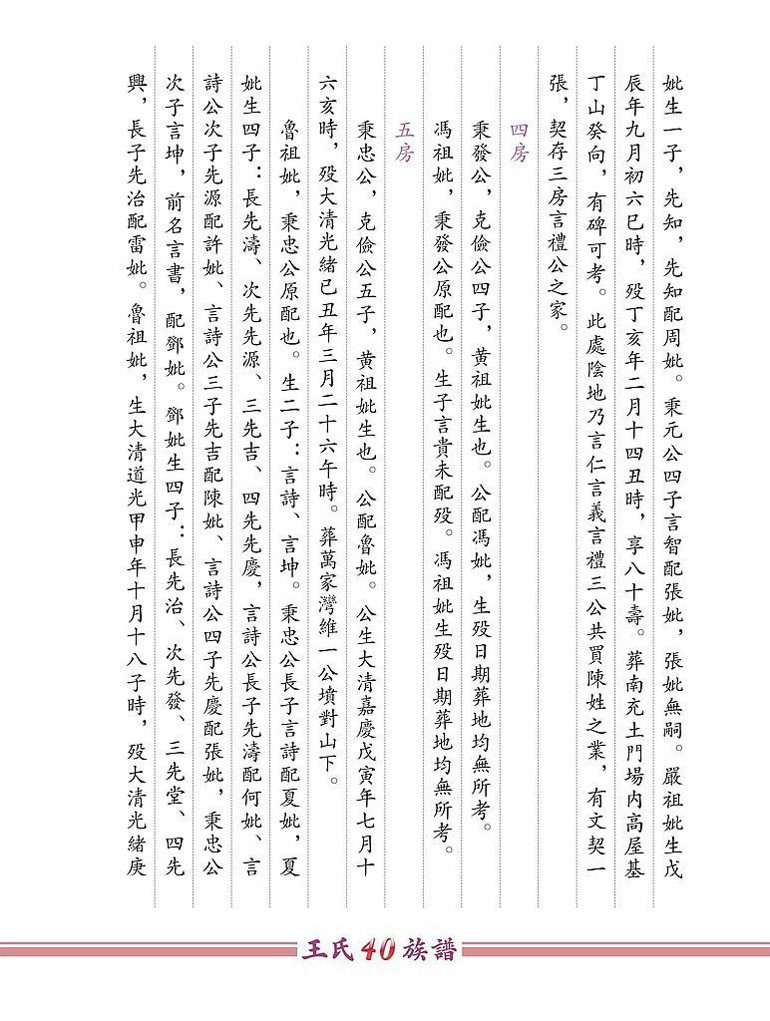 妣生一子，先知，先知配周妣。秉元公四子言智配張妣，張妣無嗣。嚴祖妣生戊
辰年九月初六巳時，歿丁亥年二月十四丑時，享八十壽。葬南充土門場内高屋基
丁山癸向，有碑可考。此處陰地乃言仁言義言禮三公共買陳姓之業，有文契一
張，契存三房言禮公之家。
四房
秉發公，克儉公四子，黄祖妣生也。公配馮妣，生歿日期葬地均無所考。
馮祖妣，秉發公原配也。生子言貴未配歿。馮祖妣生歿日期葬地均無所考。
五房
秉忠公，克儉公五子，黄祖妣生也。公配魯妣。公生大清嘉慶戊寅年七月十
六亥時，歿大清光緒己丑年三月二十六午時。葬萬家灣維一公墳對山下。
魯祖妣，秉忠公原配也。生二子：言詩、言坤。秉忠公長子言詩配夏妣，夏
妣生四子：長先濤、次先先源、三先吉、四先先慶，言詩公長子先濤配何妣、言
詩公次子先源配許妣、言詩公三子先吉配陳妣、言詩公四子先慶配張妣，秉忠公
次子言坤，前名言書，配鄧妣。鄧妣生四子：長先治、次先發、三先堂、四先
興，長子先治配雷妣。魯祖妣，生大清道光甲申年十月十八子時，歿大清光緒庚
王氏40族譜